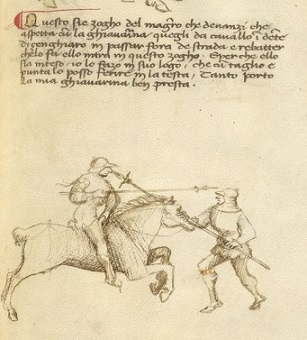 Questo sie zogho del magro che denanzi che
aspetta cum la ghiavarina quegli da cavallo i dente
di cenghiaro in passar fora de strada e rebatter
chelo fa ello intra in questo zogho. E per che ello
sia inteso io lo fazo in suo logo, che cum taglio e
punta lo posso ferire in la testa, Tanto porto
La mia ghiavarina ben presta.